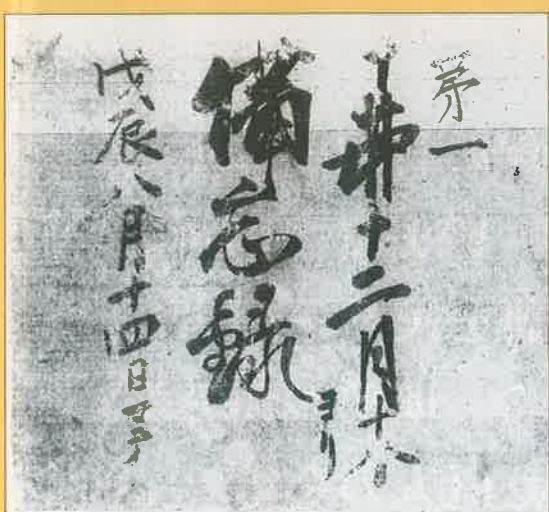 第一
十二月十
ヨリ
備忘録
戊辰八月十四日マデ